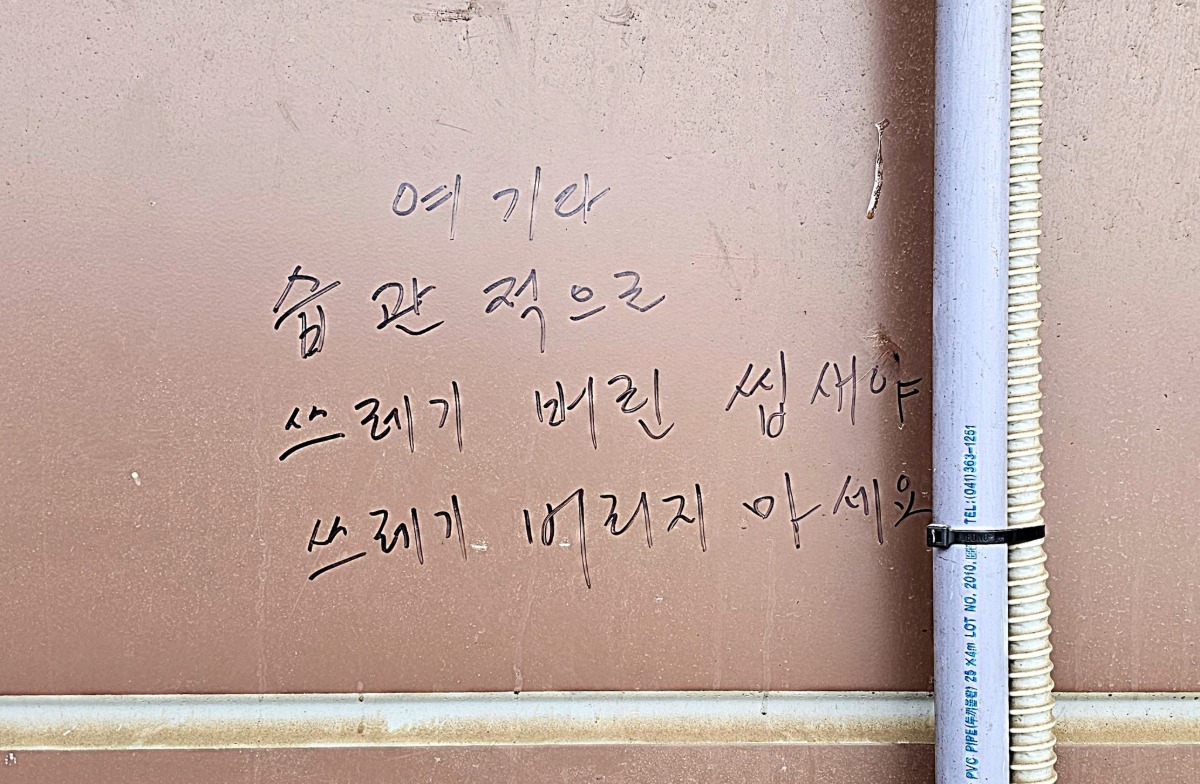 여기다
습관적으로
쓰레기 버린 씹새야
쓰레기 버리지 마세요
PVC PIPE(두께불량) 25 X4m LOT NO, 2010. TEL:(041)363-1251